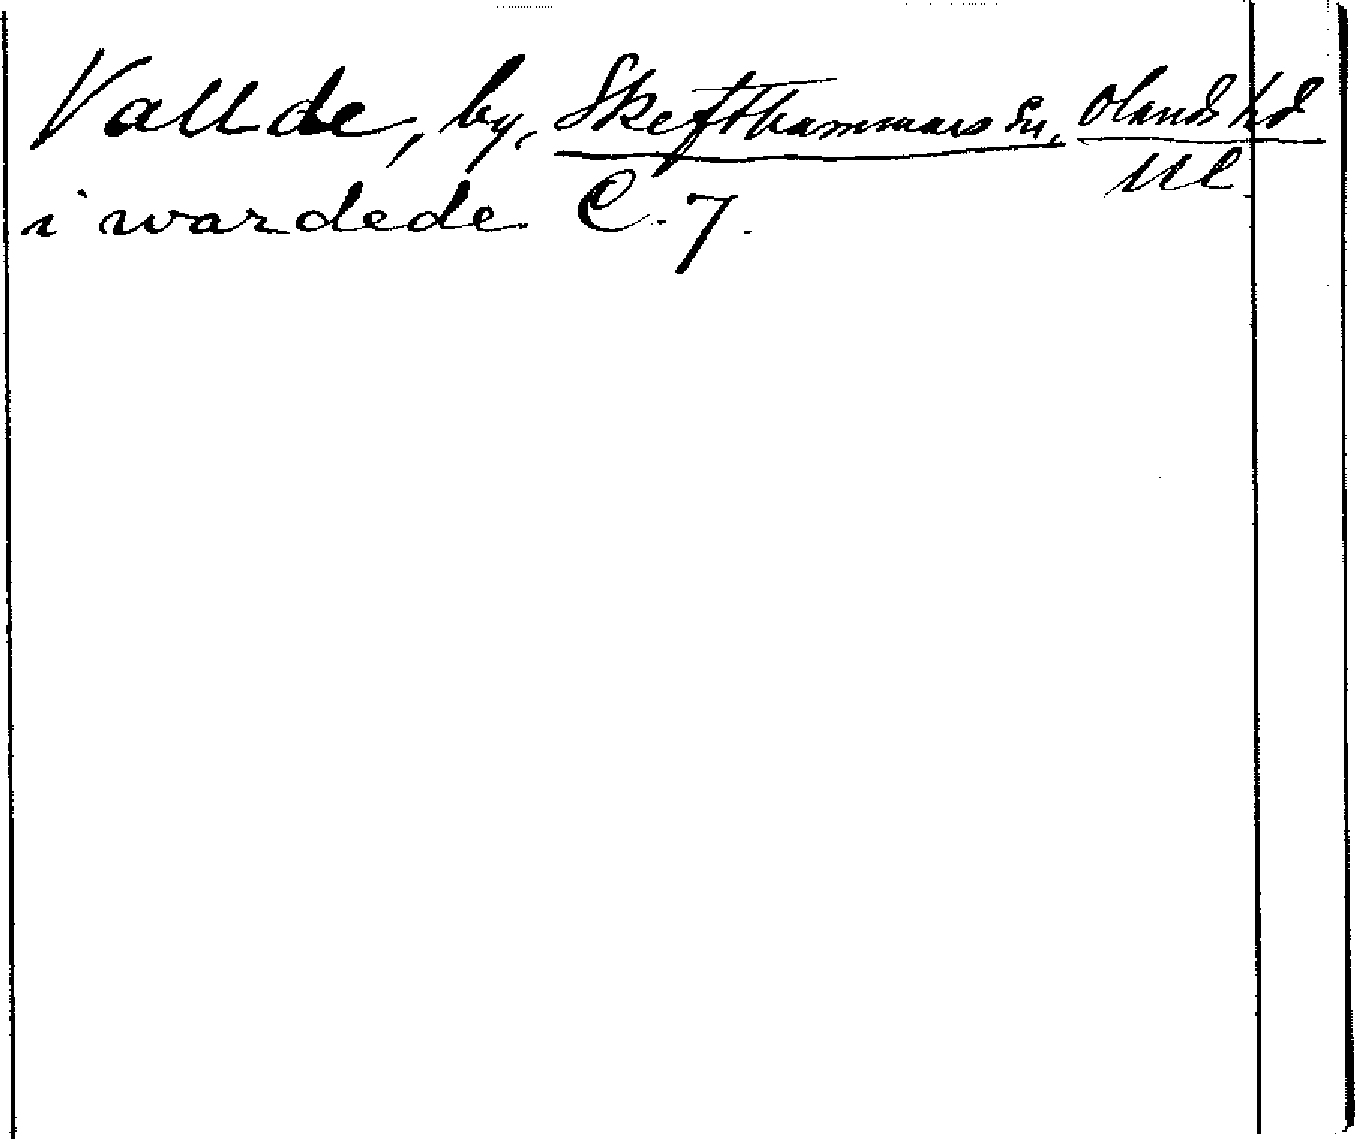 Vallde, by, Skefthammars sn, Olands hd
Ul
i wardede C. 7.